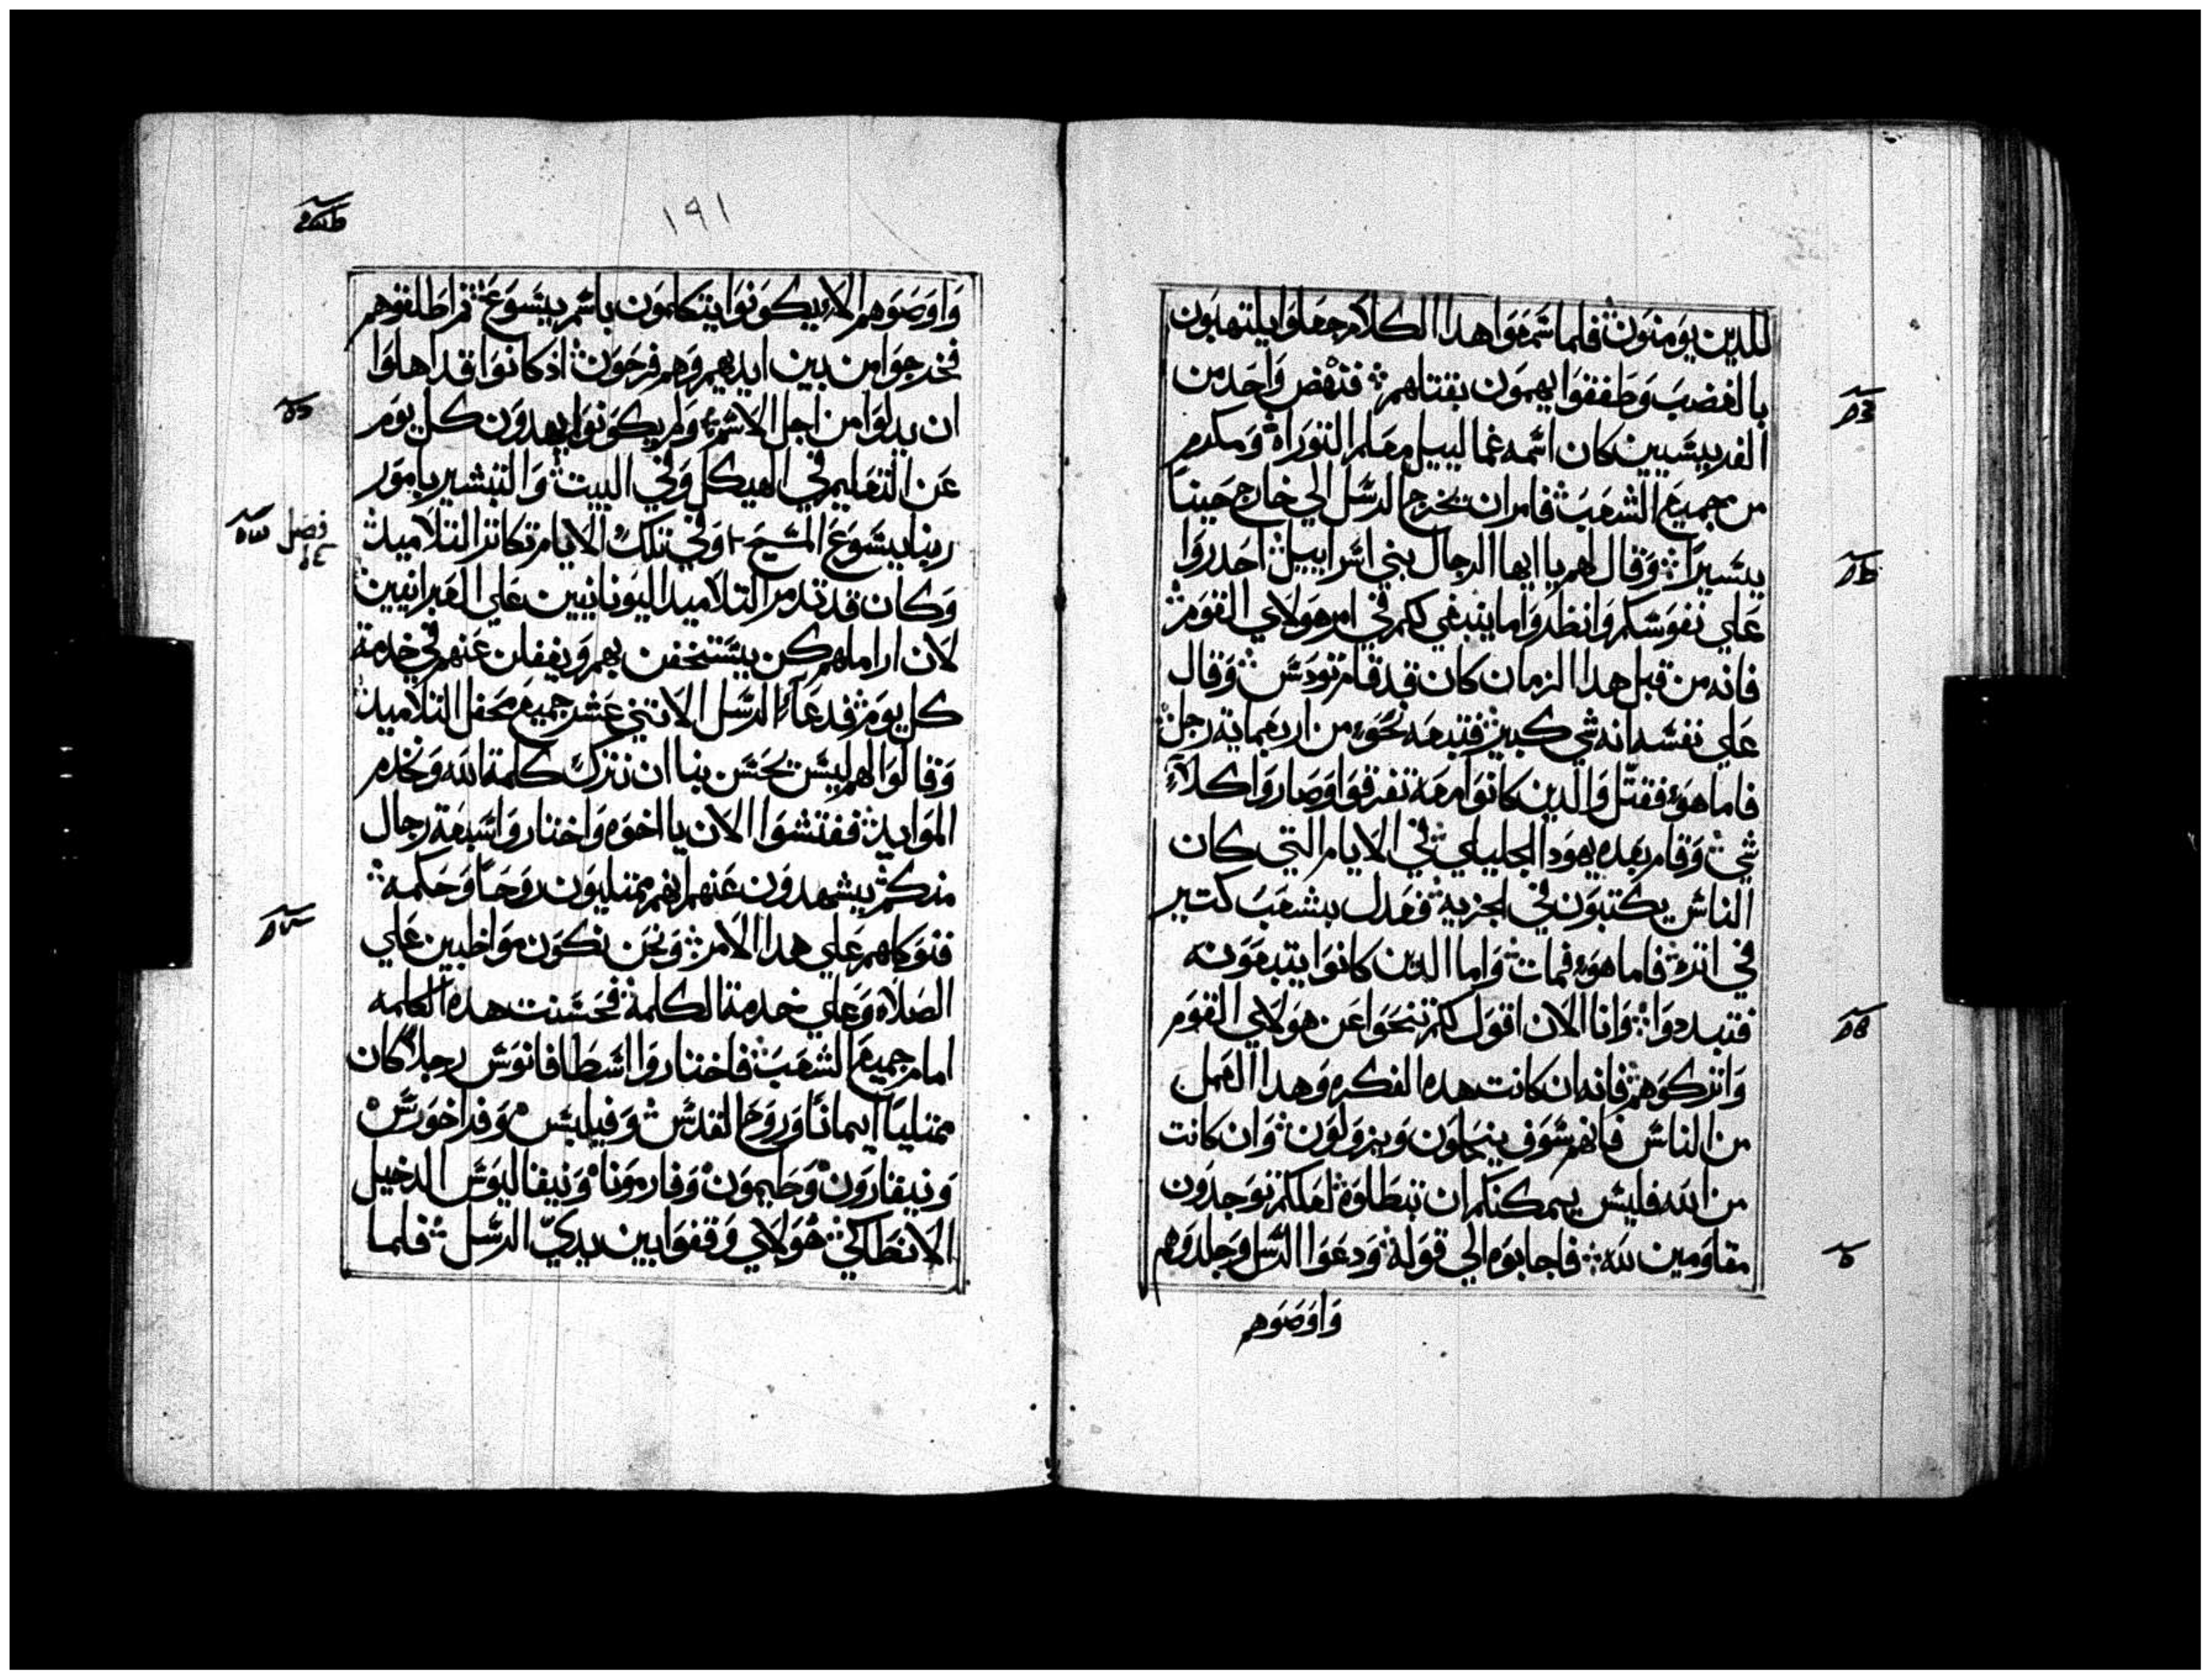 للدين يومنون فلما سمعوا هدا الكلام جعلوا يلتهبون
بالغضب وطفقوا يهمون بقتلهم فنهض واحد من
الفريسيين كان اسمه غمالييل معلم التوراه ومكرم
من جميع الشعب فامر ان تخرج الرسل الي خارج حينا
يسيرا وقال لهم يا ايها الرجال بني اسراييل احدروا
علي نفوسكم وانظروا ما ينبغي لكم في امر هولاي القوم
فانه من قبل هدا الزمان كان قد قام تودس وقال
علي نفسه انه شي كبير فتبعه نحو من اربعمايه رجل
فاما هو فقتل والدين كانوا معه تفرقوا وصاروا كلا
شي وقام بعده يهودا الجليلي في الايام التي كان
الناس يكتبون في الجزيه فعدل بشعب كتير
في اتره فاما هو فمات واما الدين كانوا يتبعونه
فتبددوا وانا الان اقول لكم تنحوا عن هولاي القوم
واتركوهم فانه ان كانت هده الفكره وهدا العمل
من الناس فانهم سوف ينحلون ويزولون وان كانت
من الله فليس يمكنكم ان تبطلوه لعلكم توجدون
مقاومين لله فاجابوه الي قوله ودعوا الرسل وجلدوهم
واوصوهم
١٩١
واوصوهم الا يكونوا يتكلمون باسم يسوع تم اطلقوهم
فخرجوا من بين ايديهم وهم فرحون اد كانوا قد اهلوا
ان يدلوا من اجل الاسم ولم يكونوا يهدون كل يوم
عن التعليم في الهيكل وفي البيت والتبشير بامور
ربنا يسوع المسيح وفي تلك الايام تكاتر التلاميد
فصل
وكان قد تدمر التلاميد اليونانيين علي العبرانيين
لان اراملهم كن يستخفن بهم ويغفلن عنهم في خدمة
كل يوم فدعا الرسل الاتني عشر جميع محفل التلاميد
وقالوا لهم ليس يحسن بنا ان نترك كلمة الله ونخدم
الموايد ففتشوا الان يا اخوه واختاروا سبعة رجال
منكم يشهدون عنهم انهم ممتليون روحا وحكمه
فنوكلهم علي هدا الامر ونحن نكون مواظبين علي
الصلاه وعلي خدمة الكلمة فحسنت هده الكلمه
امام جميع الشعب فاختاروا اسطافانوس رجلا كان
ممتليا ايمانا وروح القدس وفيلبس وفراخورس
ونيقارون وطيمون وفارمونا ونيقاليوس الدخيل
الانطاكي هولاي وقفوا بين يدي الرسل فلما